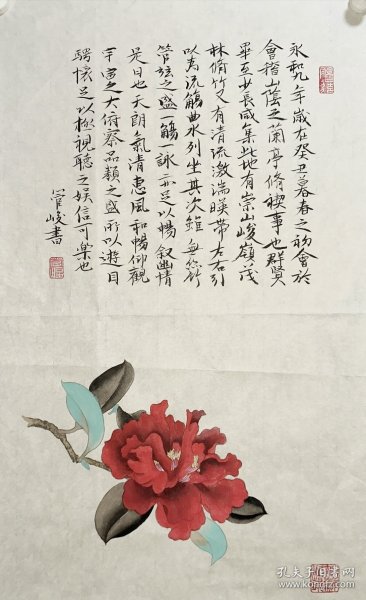 永和九年歲在癸丑暮春之初會於
會稽山陰之蘭亭脩禊事也群賢
畢至少長咸集此地有崇山峻嶺茂
林脩竹又有清流激湍暎帶左右引
以為流觴曲水列坐其次雖無絲竹
管弦之盛一觴一詠亦足以暢叙幽情
是日也天朗氣清惠風和暢仰觀
宇宙之大俯察品類之盛所以遊目
騁懷足以極視聽之娛信可樂也
管峻書
孔夫子旧书网